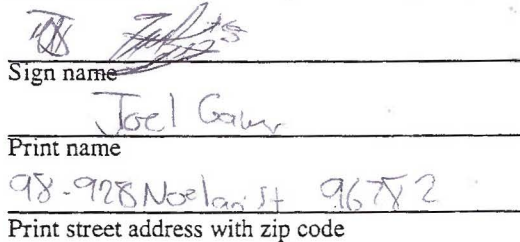 Sign name
Joel
Print name
98-928 Noelani St 96782
Print street address with zip code